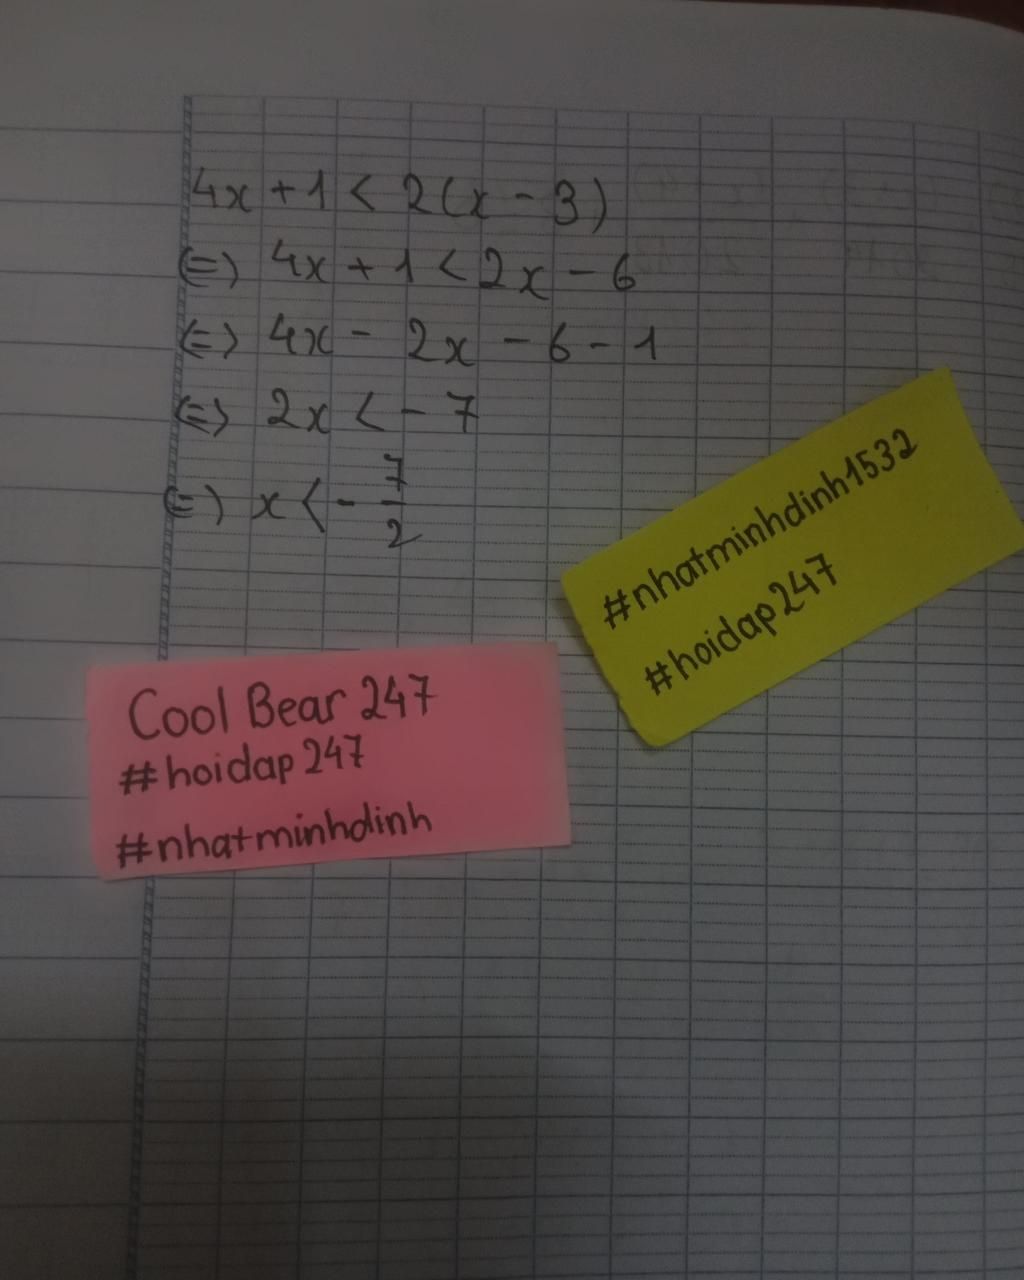 4x + 1 < 2(x - 3)
(=) 4x + 1 < 2x - 6
(=) 4x - 2x - 6 - 1
(=) 2x < - 7
(=) x < - 7/2
#nhatminhdinh1532
#hoidap247
Cool Bear 247
#hoidap 247
#nhatminhdinh